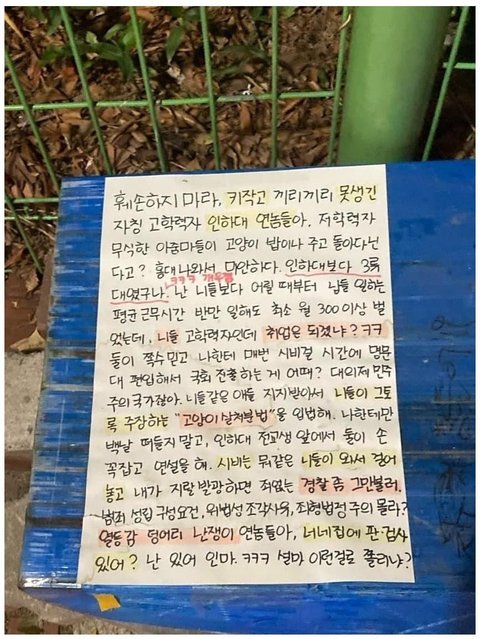 훼손하지 마라, 키작고 끼리끼리 못생긴
자칭 고학력자 인하대 연놈들아. 저학력자
무식한 아줌마들이 고양이 밥이나 주고 돌아다닌
다고? 홍대 나와서 미안하다. 인하대보다 3류
대였구나. ㅋㅋㅋ 개웃김
난 니들보다 어릴 때부터 남들 일하는
평균 근무시간 반만 일해도 최소 월 300 이상 벌
었는데, 니들 고학력자인데 취업은 되겠냐? ㅋㅋ
둘이 쪽수 믿고 나한테 매번 시비걸 시간에 명문
대 편입해서 국회 진출하는 게 어때? 대의제 민주
주의 국가잖아. 니들같은 애들 지지받아서 니들이 그토
록 주장하는 "고양이 살처분법"을 입법해. 나한테만
백날 떠들지 말고, 인하대 전교생 앞에서 둘이 손
꼭잡고 연설을 해. 시비는 뭐같은 니들이 와서 걸어
놓고 내가 지랄발광하면 죄없는 경찰 좀 그만불러.
범죄 성립 구성요건, 위법성 조각사유, 죄형법정주의 몰라?
열등감 덩어리 난쟁이 연놈들아, 너네집에 판·검사
있어? 난 있어 인마. ㅋㅋㅋ 설마 이런걸로 쫄리냐?